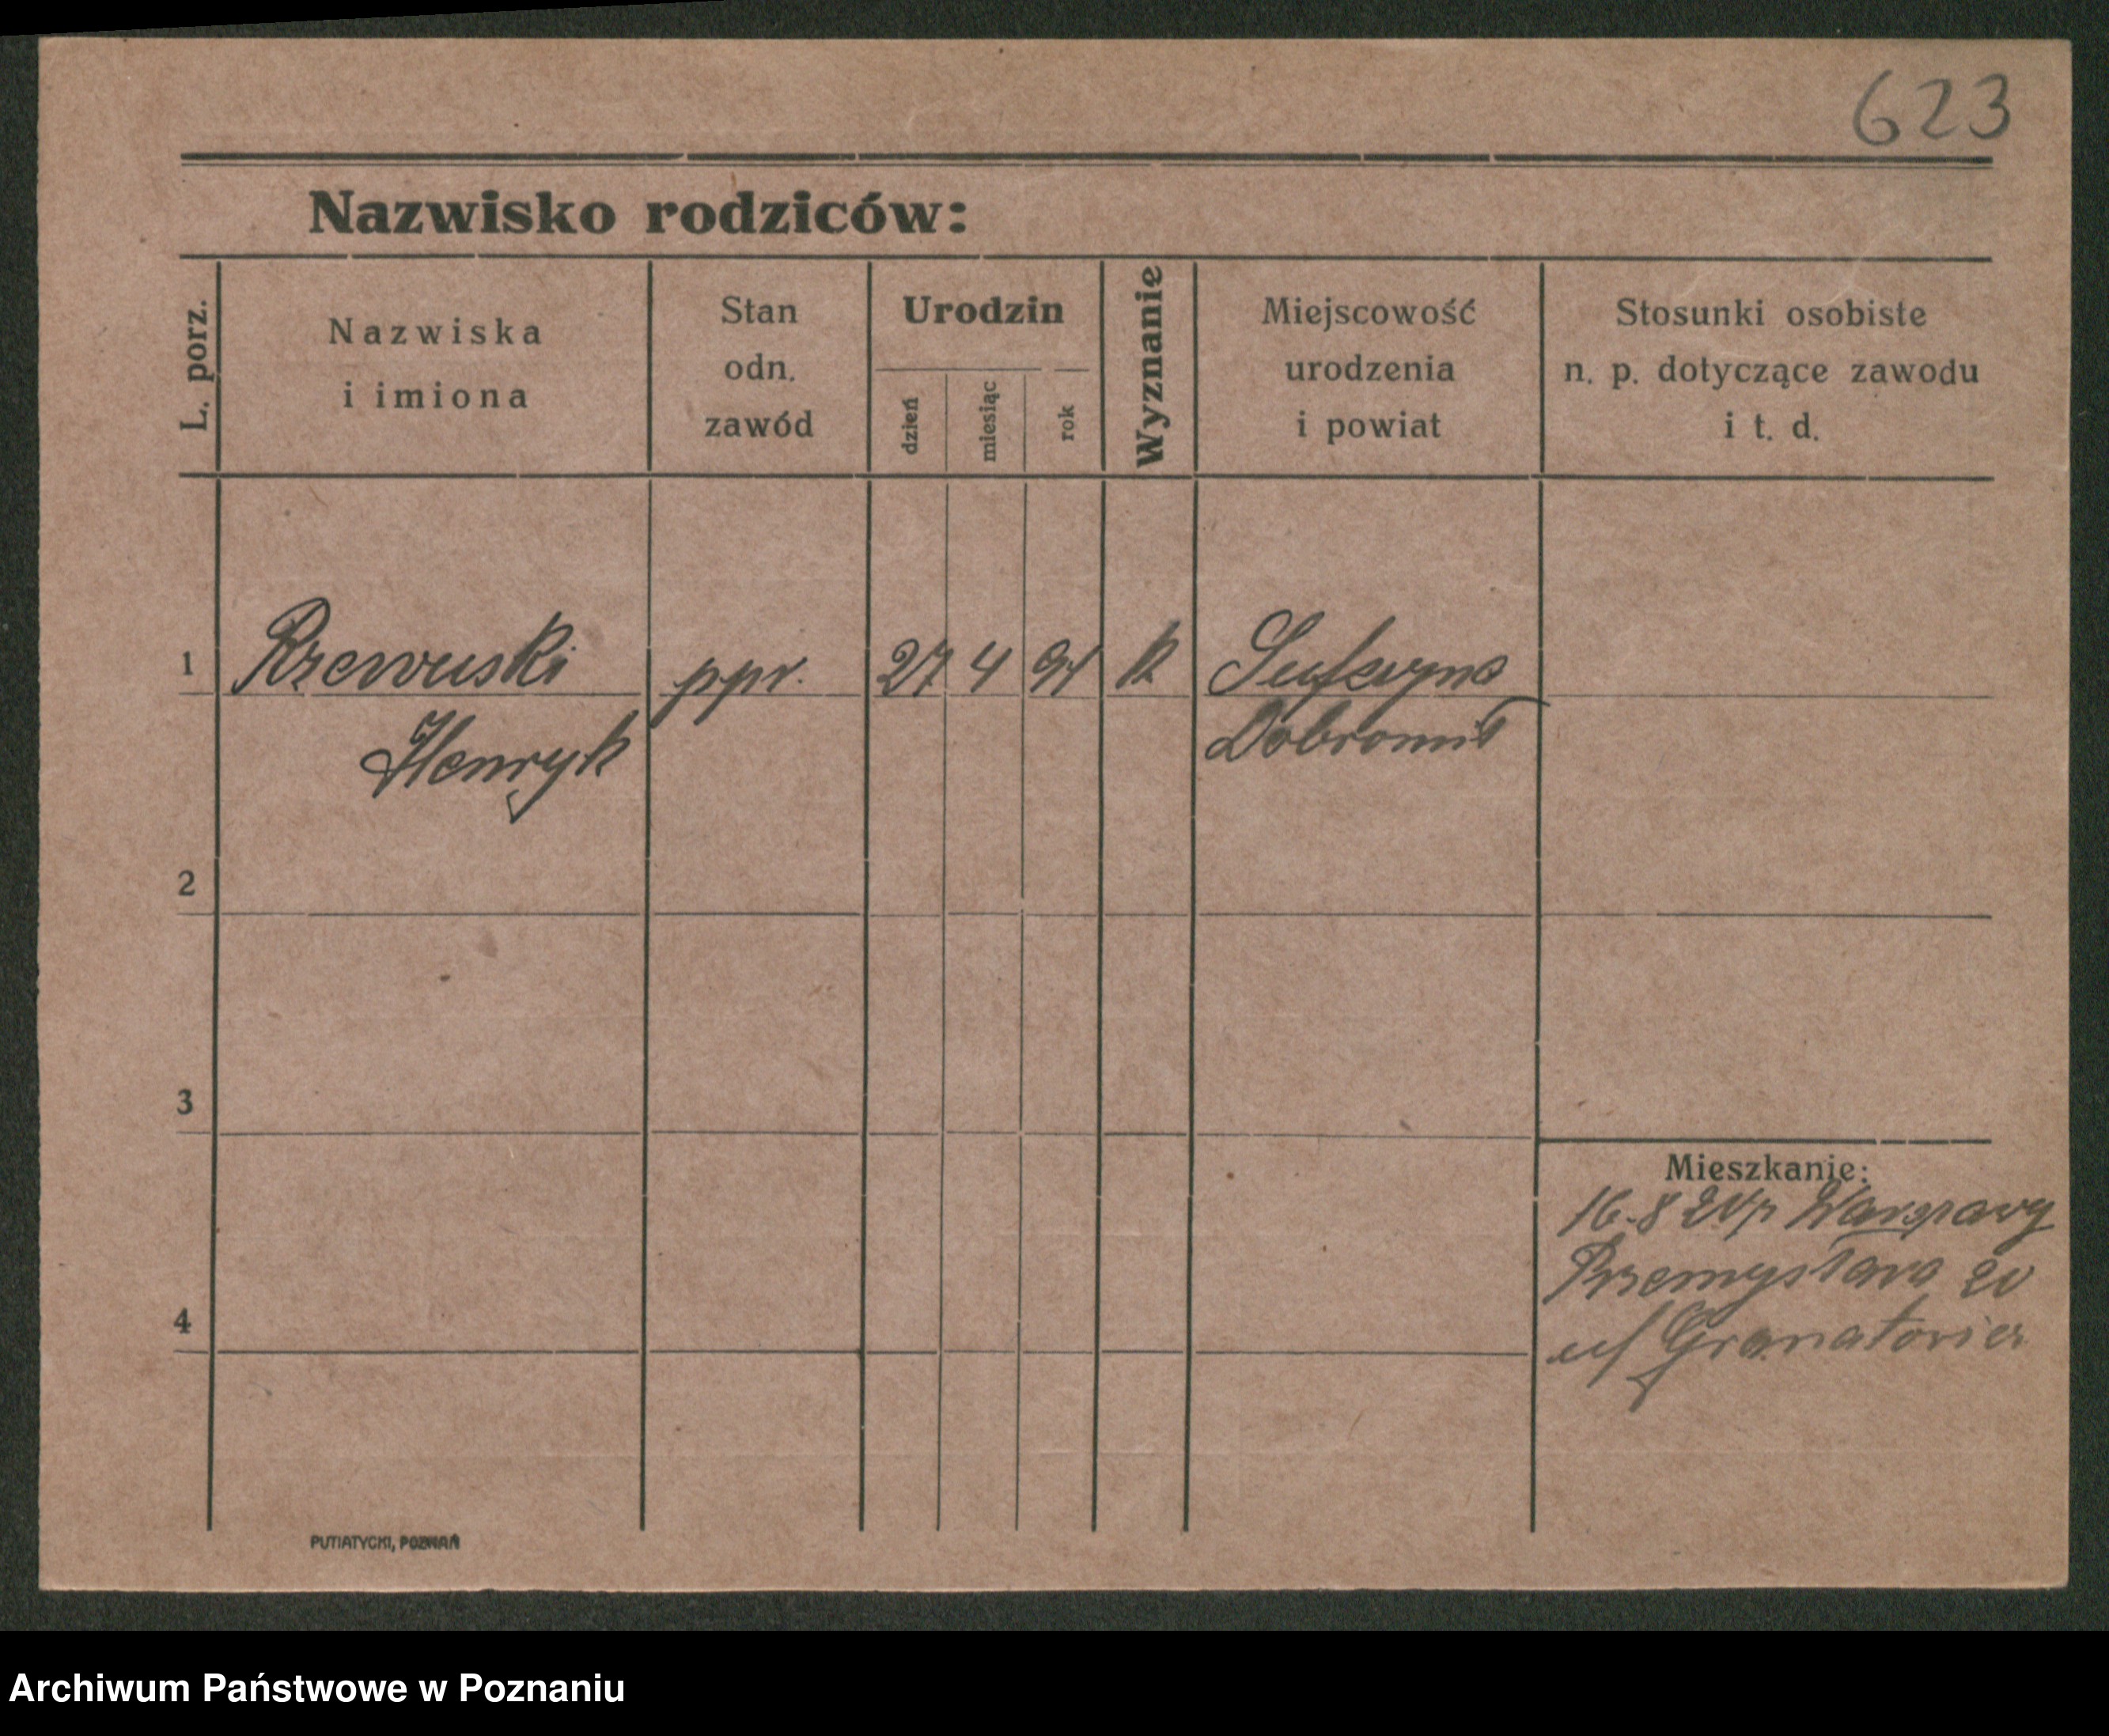 623
Nazwisko rodziców:
L. porz.
Nazwiska
i imiona
Stan
odn.
zawód
Urodzin
dzień
miesiąc
rok
Wyznanie
Miejscowość
urodzenia
i powiat
Stosunki osobiste
n. p. dotyczące zawodu
i t. d.
1 Rzewuski ppr. 27 4 94 k
Henryk Dobromil
2
3
Mieszkanie:
16.8 Warszawy
Przemysława 20
4
PUTIATYCKI, POZNAŃ
Archiwum Państwowe w Poznaniu